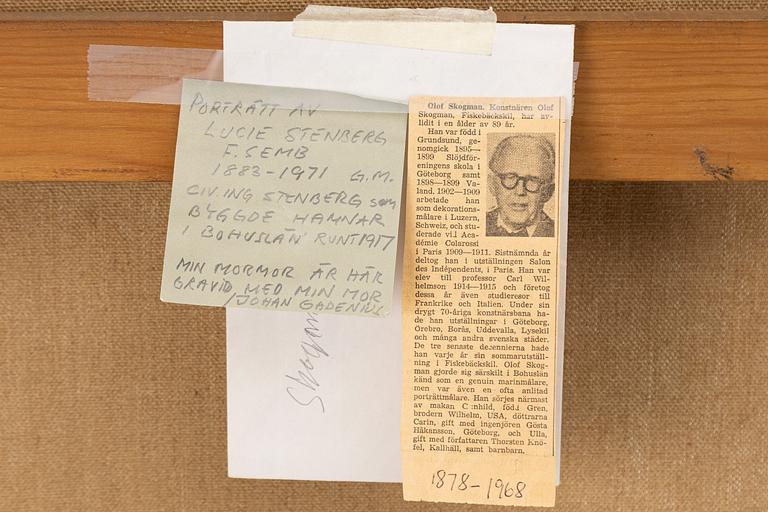 PORTRÄTT AV
LUCIE STENBERG
F. SEMB
1883-1971 G.M.
CIV.ING STENBERG som
BYGGDE HAMNAR
I BOHUSLÄN RUNT 1917
MIN MORMOR ÄR HÄR
GRAVID MED MIN MOR
/JOHAN GADENIUS
Skogman
Olof Skogman. Konstnären Olof
Skogman, Fiskebäckskil, har av-
lidit i en ålder av 89 år.
Han var född i
Grundsund, ge-
nomgick 1895—
1899 Slöjdför-
eningens skola i
Göteborg samt
1898—1899 Va-
land. 1902—1909
arbetade han
som dekorations-
målare i Luzern,
Schweiz, och stu-
derade vid Aca-
démie Colarossi
i Paris 1909—1911. Sistnämnda år
deltog han i utställningen Salon
des Indépendents, i Paris. Han var
elev till professor Carl Wil-
helmson 1914—1915 och företog
dessa år även studieresor till
Frankrike och Italien. Under sin
drygt 70-åriga konstnärsbana ha-
de han utställningar i Göteborg,
Örebro, Borås, Uddevalla, Lysekil
och många andra svenska städer.
De tre senaste decennierna hade
han varje år sin sommarutställ-
ning i Fiskebäckskil. Olof Skog-
man gjorde sig särskilt i Bohuslän
känd som en genuin marinmålare,
men var även en ofta anlitad
porträttmålare. Han sörjes närmast
av makan Gunhild, född Gren,
brodern Wilhelm, USA, döttrarna
Carin, gift med ingenjören Gösta
Håkansson, Göteborg, och Ulla,
gift med författaren Thorsten Knö-
fel, Kallhäll, samt barnbarn.
1878-1968